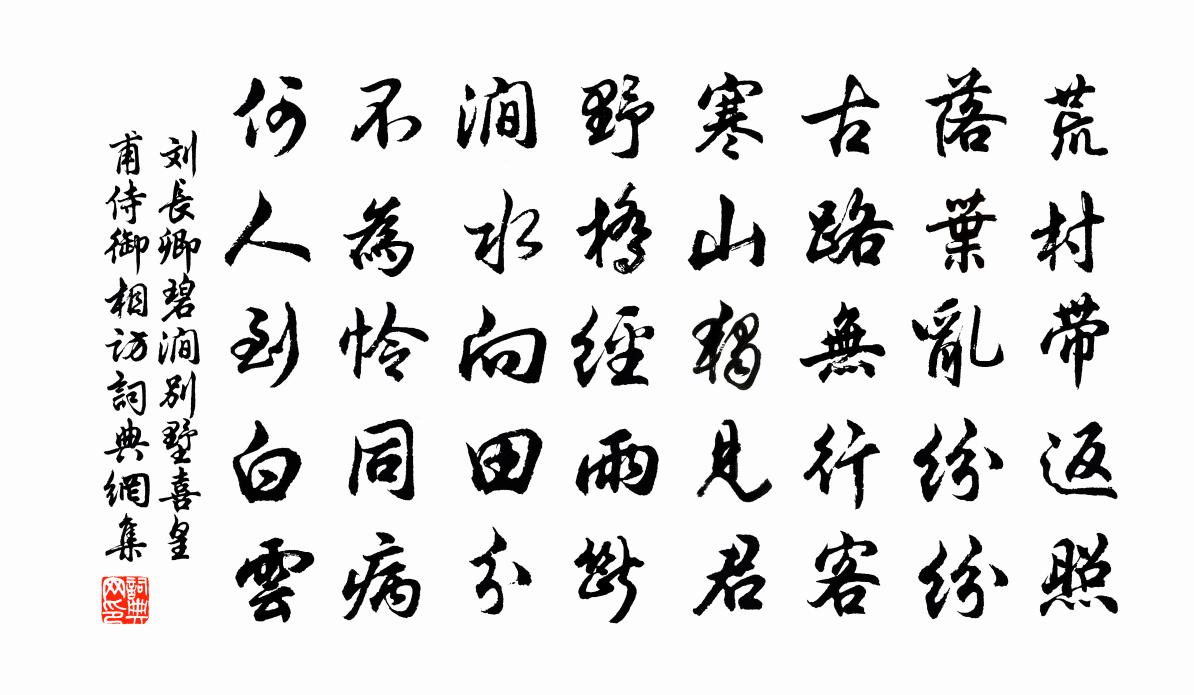 荒村带返照
落葉亂紛紛
古路無行客
寒山獨見君
野橋經雨斷
澗水向田分
不為憐同病
何人到白雲
刘長卿碧澗别墅喜皇
甫侍御相访詞典網集
詞典
网印